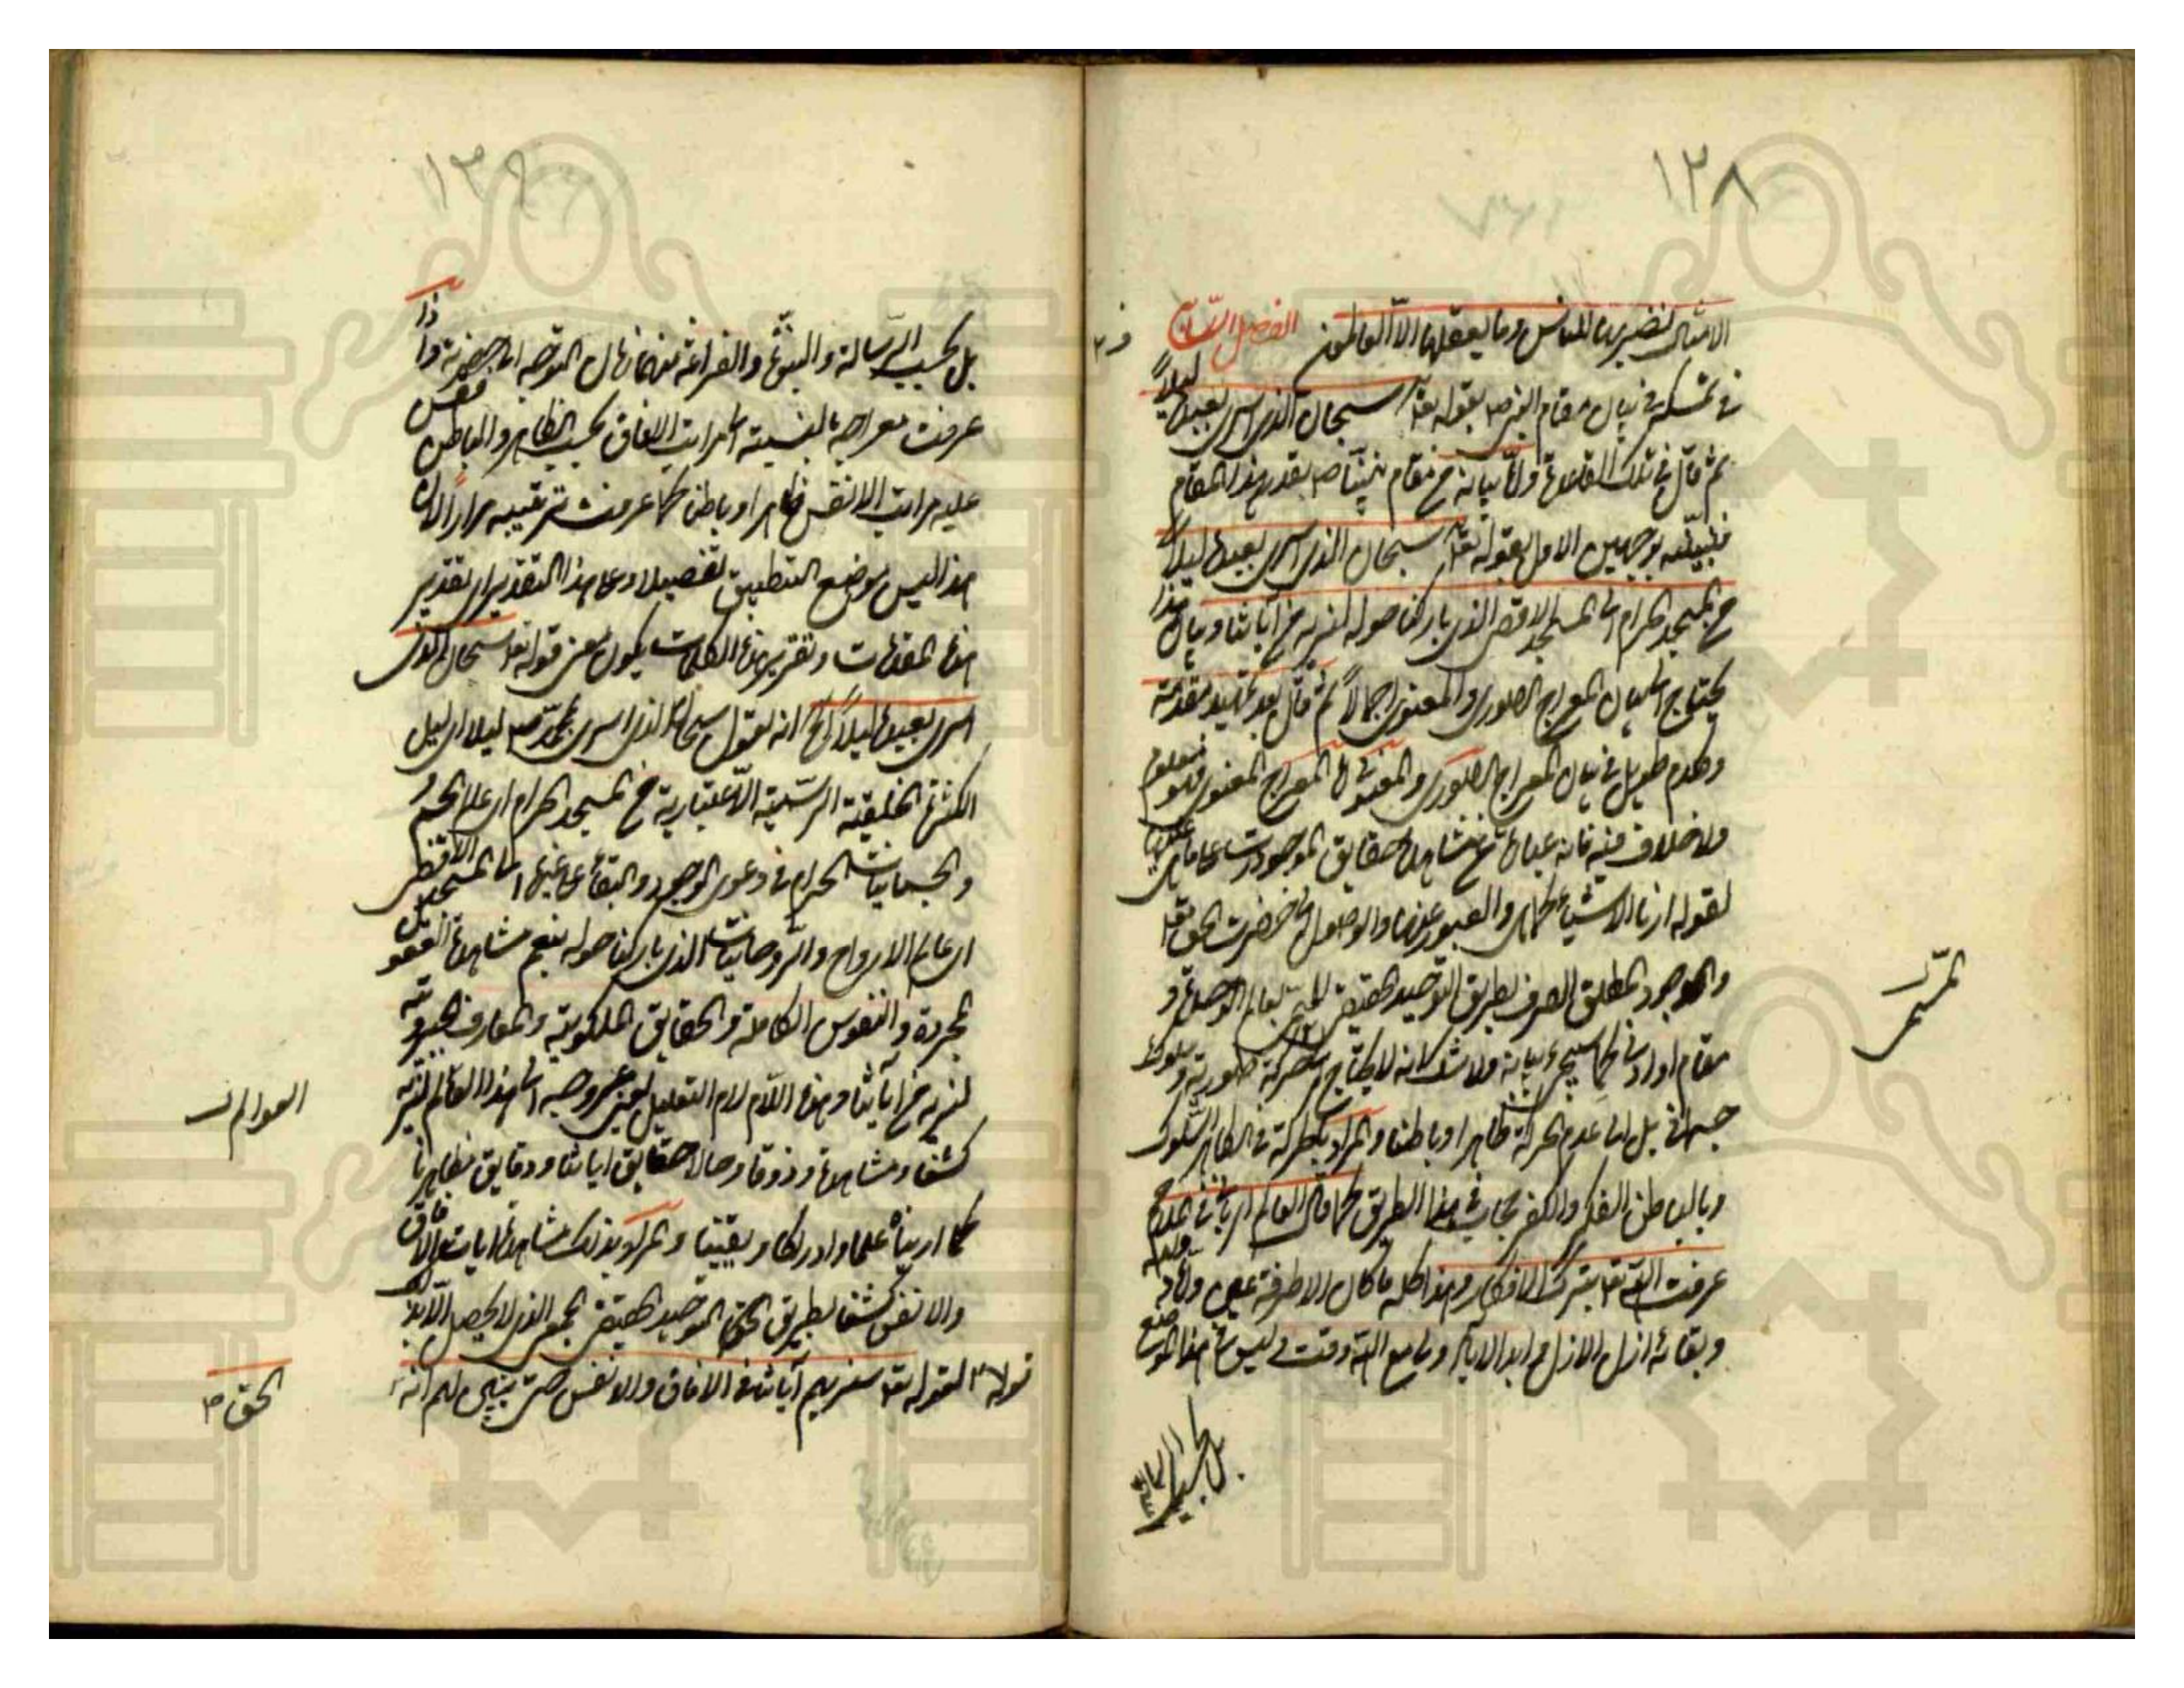 ١٣٨
الامثال نضربها للناس وما يعقلها الا العالمون الفصل الثامن
في تمسكه في بيان مقام النبي ص بقوله تعالى سبحان الذي اسرى بعبده ليلاً
ثم قال في تلك القاعدة واما بيانه من مقام نبينا ص بقدر هذا المقام
فنبينه بوجهين الاول بقوله تعالى سبحان الذي اسرى بعبده ليلاً
من المسجد الحرام الى المسجد الاقصى الذي باركنا حوله لنريه من آياتنا وبيان هذا
يحتاج الى بيان المعراج الصوري والمعنوي اجمالاً ثم قال بعد تمهيد مقدمة
وكلام طويل في بيان المعراج الصوري والمعنوي اما المعراج المعنوي فهو معلوم
ولا خلاف فيه فانه عبارة عن مشاهدة حقايق الموجودات على ما هي عليها
لقوله ارنا الاشياء كما هي والعبور عنها والوصول الى حضرت الحق تعالى
والموجود المطلق الصرف بطريق التوحيد الحقيقي بعالم الوحدة و
مقام او ادنى كما سيجيء بيانه فلا شك انه لا يحتاج الى حركة صورية وسلوك
جسماني بل الى عدم الحركة ظاهرا وباطنا والمراد بالحركة في الظاهر السلوك
وبالباطن الفكر والفكر حجاب في هذا الطريق كما قال العالم الرباني عليه السلام
عرفت الله تعالى بترك الافكار وهذا كله ما كان الا طرفة عين
وبقائه ازل الازل وابد الاباد ولي مع الله وقت وليس هذا الموضع
بل بحسب الرسالة
المسمى
١٣٩
بل بحسب الرسالة والنبوة والفراغة منهما حال التوجه الى حضرته واذا
عرفت معراجه بالنسبة الى مراتب الافاق بحسب الظاهر والباطن فقس
عليه مراتب الانفس ظاهرا وباطنا كما عرفت ترتيبه مرارا لان
هذا ليس موضع التطبيق تفصيلا وعلى هذا التقدير اي تقدير
هذه المقدمات وتقرير هذه الكلمات يكون معنى قوله تعالى سبحان الذي
اسرى بعبده ليلاً الخ انه يقول سبحان الذي اسرى بمحمد ص ليلا اي ليل
الكثرة الخلقية الرسمية الاعتبارية من المسجد الحرام اي عالم الجسم و
الجسمانيات الحرام في دعوى الوجود والبقاء على غيرها الى المسجد الاقصى
اي عالم الارواح والروحانيات الذي باركنا حوله بنعيم مشاهدة العقول
المجردة والنفوس الكاملة والحقايق الملكوتية والمعارف الجبروتية
لنريه من آياتنا وهذه اللام لام التعليل يعني عروجه الى هذا العالم لنريه
كشفا ومشاهدة وذوقا وحالا حقايق اياتنا ودقايق مظاهرنا
كما اريناه علما وادراكا ويقينا والمراد بذلك مشاهدة ايات الافاق
والانفس كشفا بطريق التوحيد الحقيقي الجمعي الذي لا يحصل الا بذلك
لقوله تعالى سنريهم آياتنا في الافاق والانفس حتى يتبين لهم انه
العوالم
الحق